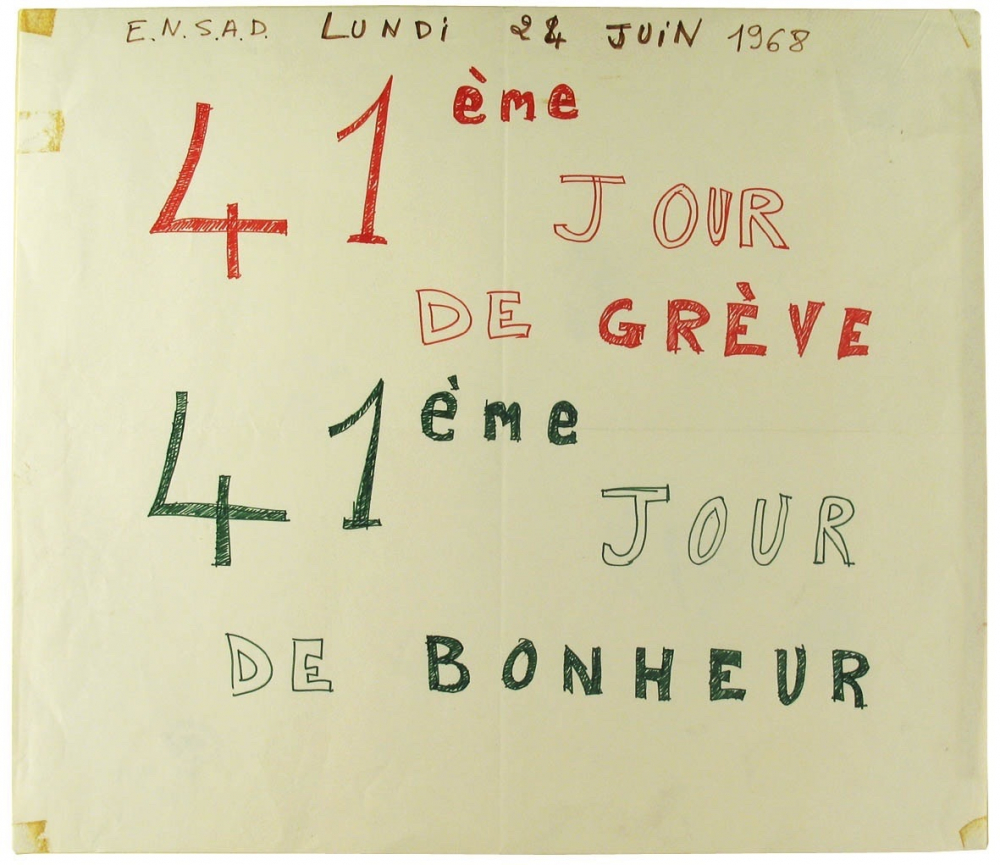 E.N.S.A.D. LUNDi 24 JUiN 1968
41ème JOUR
DE GRÈVE
41ème JOUR
DE BONHEUR